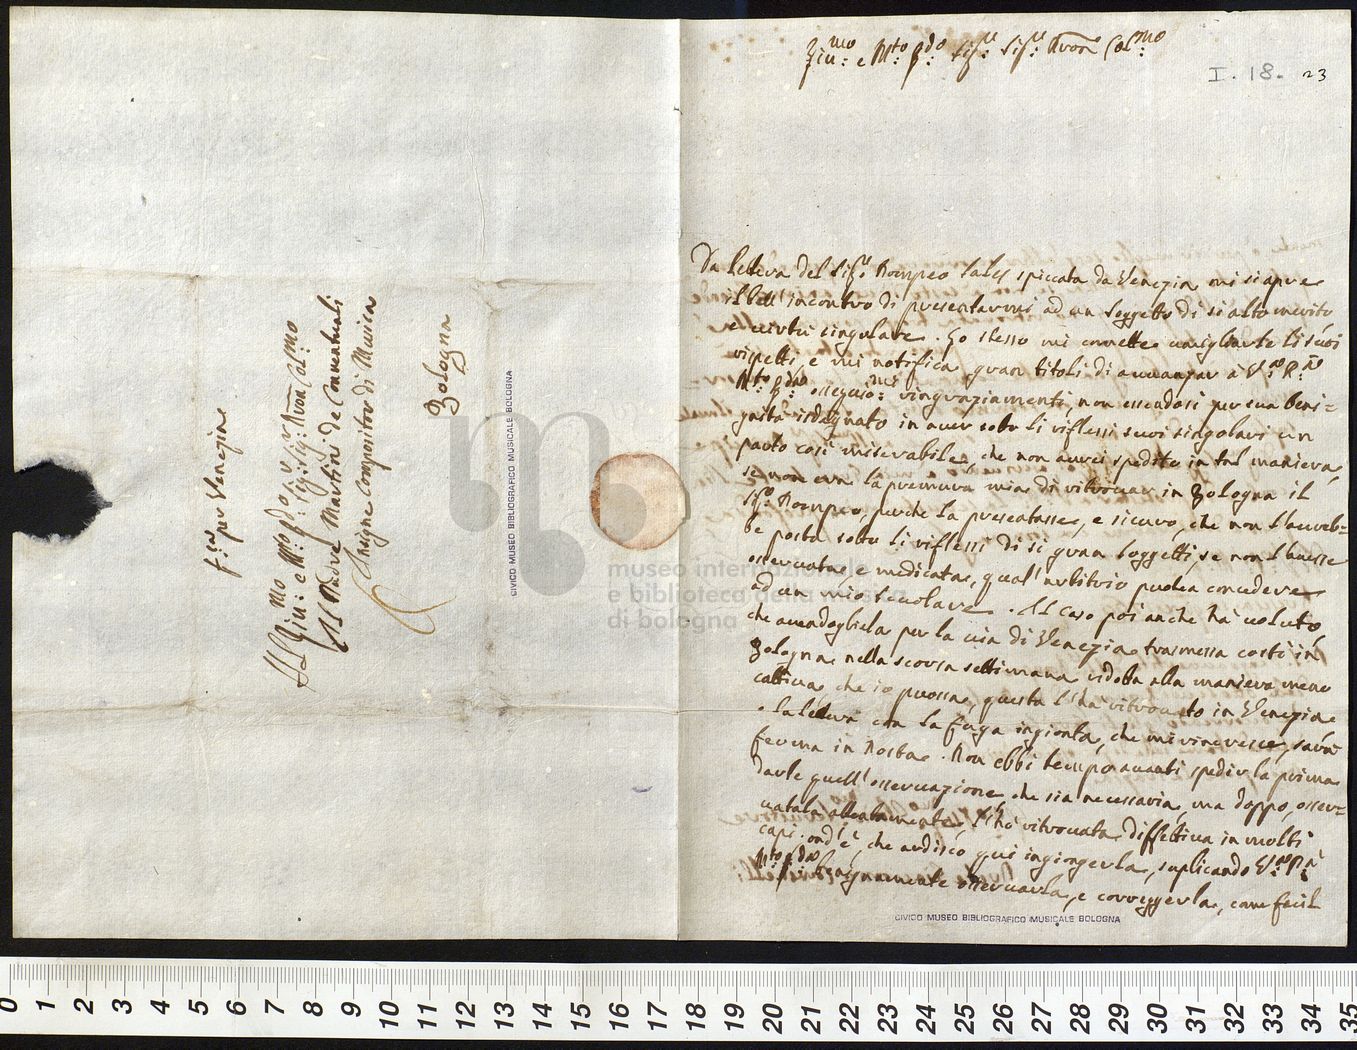 F:ca per Venezia
All Ill:mo e M:to R:do Sig:r Sig:r Pron Col:mo
Il Padre Martini de Conventuali
Insigne Compositor di Musica
Bologna
Ill:mo e M:to R:do Sig:r Sig:r Pron Col:mo
I. 18. 23
Da lettera del Sig:r Pompeo Sales spiccata da Venezia mi si apre
il bell'incontro di presentarmi ad un soggetto di si alto merito
e virtù singolare. Lo stesso mi comette umigliarle li suoi
rispetti, e mi notifica gran titoli di avvanzar à V:
M:to R:do ossequio:mi ringraziamenti, non essendosi per sua beni=
gnità isdegnato in aver sotto li riflessi suoi singolari un
parto così miserabile, che non avrei spedito in tal maniera,
se non era la premura mia di ritrovar in Bologna il
Sig:r Pompeo, perche la presentasse, e sicuro, che non l'avreb=
be posta sotto li riflessi di si gran soggetti, se non l'avesse
osservata, e medicata, qual'arbitrio puotea concedere
ad un mio scuolare. Il caso poi anche hà voluto
che avendogliela per la via di Venezia trasmessa costì in
Bologna nella scorsa settimana ridotta alla maniera meno
cattiva, che io puossa, questa l'hà ritrovato in Venezia
e la lettera con la fuga ingionta, che mi rincresce, sarà
ferma in Posta. Non ebbi tempo avanti spedir la prima
darle quell'osservazione, che sia necessaria, ma doppo, osser=
vatala attentamente, l'hò ritrovata diffettiva in molti
capi. ond'è, che ardisco qui ingiongerla, suplicando V:
M:to R:da benignamente osservarla, e correggerla, come fecil
CIVICO MUSEO BIBLIOGRAFICO MUSICALE BOLOGNA
CIVICO MUSEO BIBLIOGRAFICO MUSICALE BOLOGNA
museo internazionale
e biblioteca della musica
di bologna
0 1 2 3 4 5 6 7 8 9 10 11 12 13 14 15 16 17 18 19 20 21 22 23 24 25 26 27 28 29 30 31 32 33 34 35